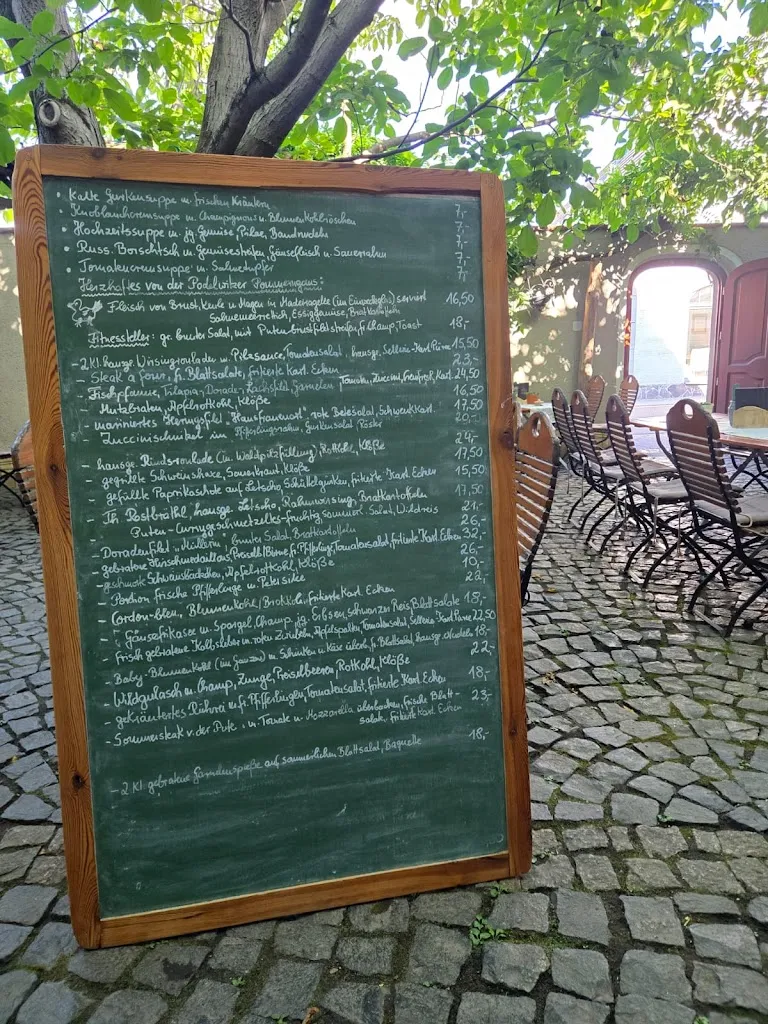 • Kalte Gurkensuppe m. frischen Kräutern 7,-
• Knoblauchcremsuppe m. Champignons u. Blumenkohlröschen 7,-
• Hochzeitssuppe m. jg. Gemüse, Pilze, Bandnudeln 7,-
• Russ. Borschtsch m. Gemüsestreifen, Gänsefleisch u. Sauerrahm 7,-
• Tomatencremsuppe m. Sahnetupfer 7,-
Herzhaftes von der Podelwitzer Pommerngans:
Fleisch von Brust, Keule u. Magen in Madeiragelle (im Einweckglas) serviert 16,50
Sahnemeerrettich, Essiggemüse, Bratkartoffeln
Fitnessteller: gr. bunter Salat, mit Putenbrustfiletstreifen, fr. Champ, Toast 18,-
- 2 Kl. hausge. Wirsingrouladen m. Pilzsauce, Tomatensalat, hausge. Sellerie-Kart. Püree 15,50
- Steak a four, fr. Blattsalate, fritierte Kart. Ecken 23,-
- Fischpfanne, Tilapia, Dorade, Lachsfilet, Garnelen, Tomaten, Zuccini, Kart. 24,50
- Mutzbraten, Apfelrotkohl, Klöße 16,50
- mariniertes Heringsfilet "Hausfrauenart", rote Betesalat, Schwenkkart. 17,50
- Zuccinischnitzel im Pfifferlingsrahm, Gurkensalat, Röster 20,-
- hausge. Rindsroulade (m. Waldpilzfüllung) Rotkohl, Klöße 24,-
- gegrillte Schweinshaxe, Sauerkraut, Klöße 17,50
- gefüllte Paprikaschote auf Letscho, Schüttelgurken, fritierte Kart. Ecken 15,50
- Th. Rostbrätl, hausge. Letscho, Rahmwirsing, Bratkartoffeln 17,50
- Puten-Currygeschnetzeltes-fruchtig, sommerl. Salat, Wildreis 21,-
- Doradenfilet "Müllerin", bunter Salat, Bratkartoffeln 26,-
- gebratene Hirschmedaillons, Preiselbirne, fr. Pfifferlinge, Tomatensalat, fritierte Kart. Ecken 32,-
- geschmorte Schweinsbäckchen, Apfelrotkohl, Klöße 26,-
- Portion frische Pfifferlinge m. Petersilie 10,-
- Cordon-bleu, Blumenkohl/Brokkoli, fritierte Kart. Ecken 23,-
- Gänsefrikasee m. Spargel, Champ, jg. Erbsen, schwarzer Reis, Blattsalate 18,-
- frisch gebratene Kalbsleber m. roten Zwiebeln, Apfelspalten, Tomatensalat, Sellerie-Kart. Püree 22,50
- Baby-Blumenkohl (im Ganzen) m. Schinken u. Käse überb. fr. Blattsalat, 18,-
- Wildgulasch m. Champ, Zunge, Preiselbeeren, Rotkohl, Klöße 22,-
- gekräutertes Rührei m. fr. Pfifferlingen, Tomatensalat, fritierte Kart. Ecken 18,-
- Sommersteak v. der Pute, m. Tomate u. Mozzarella überbacken, frische Blatt- 23,-
salate, fritierte Kart. Ecken
- 2 Kl. gebratene Garnelenspieße auf sommerlichen Blattsalat, Baguette 18,-